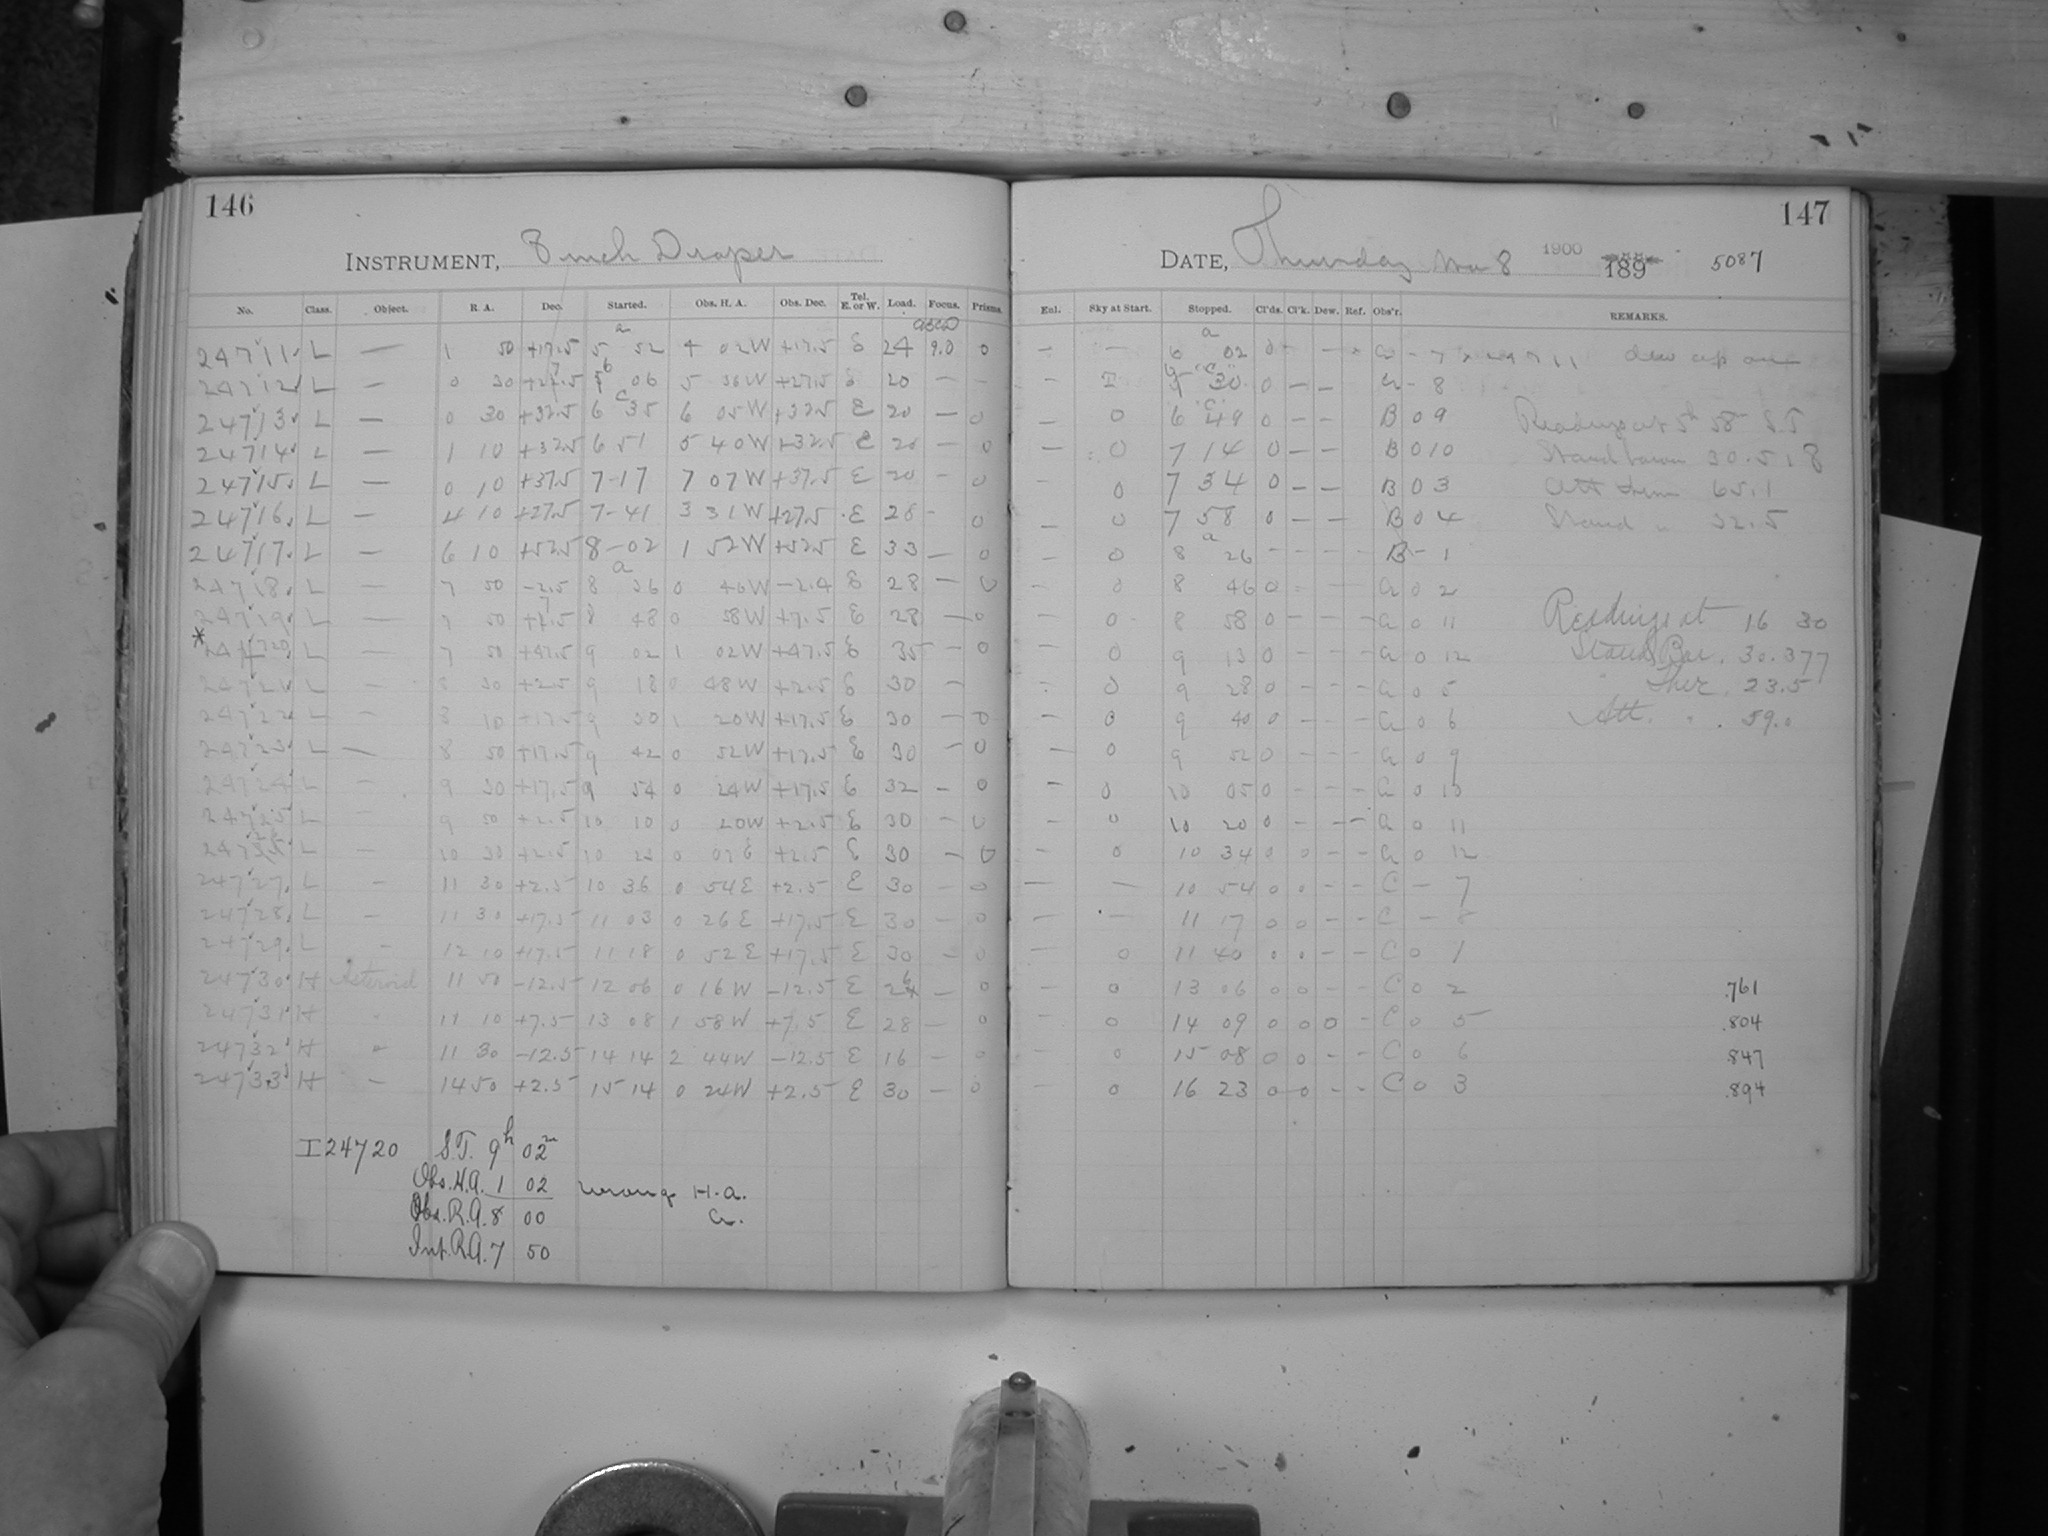 146
INSTRUMENT, 8 inch Draper
No. Class. Object. R. A. Dec. Started. Obs. H. A. Obs. Dec. Tel. E. or W. Load. Focus. Prisms.
24711 L — 1 50 +17.5 5 52 4 02 W +17.5 E 24 9.0 0
24712 L — 0 30 +27.5 06 5 36 W +27.5 E 20 — —
24713 L — 0 30 +32.5 6 35 6 05 W +32.5 E 20 — 0
24714 L — 1 10 +32.5 6 51 5 40 W +32.5 E 20 — 0
24715 L — 0 10 +37.5 7-17 7 07 W +37.5 E 20 - 0
24716 L — 4 10 +27.5 7-41 3 31 W +27.5 E 28 - 0
24717 L — 6 10 +52.5 8-02 1 52 W +52.5 E 33 — 0
a
24718 L — 7 50 -2.5 8 36 0 46 W -2.4 E 28 — 0
24719 L — 7 50 +7.5 8 48 0 58 W +7.5 E 28 — 0
* 24720 L — 7 50 +47.5 9 02 1 02 W +47.5 E 35 - 0
24721 L — 8 30 +2.5 9 18 0 48 W +2.5 E 30 —
24722 L — 8 10 +17.5 9 30 1 20 W +17.5 E 30 — 0
24723 L — 8 50 +17.5 9 42 0 52 W +17.5 E 30 — 0
24724 L — 9 30 +17.5 9 54 0 24 W +17.5 E 32 - 0
24725 L — 9 50 +2.5 10 10 0 20 W +2.5 E 30 - 0
24726 L — 10 30 +2.5 10 23 0 07 E +2.5 E 30 — 0
24727 L — 11 30 +2.5 10 36 0 54 E +2.5 E 30 — 0
24728 L — 11 30 +17.5 11 03 0 26 E +17.5 E 30 — 0
24729 L - 12 10 +17.5 11 18 0 52 E +17.5 E 30 — 0
24730 H Asteroid 11 50 -12.5 12 06 0 16 W -12.5 E 26 — 0
24731 H " 11 10 +7.5 13 08 1 58 W +7.5 E 28 — 0
24732 H " 11 30 -12.5 14 14 2 44 W -12.5 E 16 — 0
24733 H — 14 50 +2.5 15 14 0 24 W +2.5 E 30 — 0
I 24720 S.T. 9h 02m
Obs. H.A. 1 02 wrong H.a.
Obs. R.A. 8 00 a.
Int. R.A. 7 50
147
DATE, Thursday Mar 8 1900 189 5087
Eul. Sky at Start. Stopped. Cl'ds. Cl'k. Dew. Ref. Obs'r. REMARKS.
a
— — 6 02 0 - — a - 7 24711 dew cap
— 30 0 — — a - 8
— 0 6 49 0 — — B 0 9 Readings at 5h 58m S.T
— 0 7 14 0 — — B 0 10 Stand barom 30.518
— 0 7 34 0 — — B 0 3 Att Therm 65.1
— 0 7 58 0 — — B 0 4 Stand " 32.5
a
— 0 8 26 - - - - B - 1
— 0 8 46 0 - — - a 0 2
— 0 8 58 0 - — - a 0 11 Readings at 16 30
— 0 9 13 0 - - - a 0 12 Stand Bar. 30.377
- 0 9 28 0 - - - a 0 5 " Ther. 23.5
— 0 9 40 0 - - - a 0 6 Att. " . 59.0
— 0 9 52 0 - - - a 0 9
— 0 10 05 0 - - - a 0 10
— 0 10 20 0 - - - a 0 11
— 0 10 34 0 0 - - a 0 12
— — 10 54 0 0 - - C - 7
— — 11 17 0 0 - - C - 8
— 0 11 40 0 0 - - C 0 1
— 0 13 06 0 0 - - C 0 2 .761
— 0 14 09 0 0 0 - C 0 5 .804
- 0 15 08 0 0 - - C 0 6 .847
- 0 16 23 0 0 - - C 0 3 .894